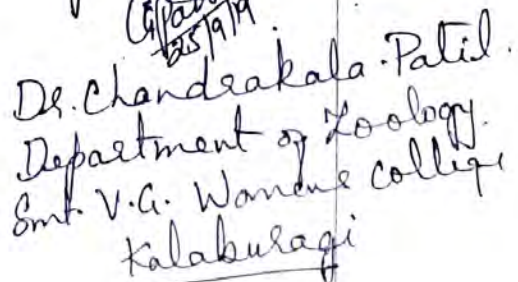 CGPatil
25/9/19
Dr. Chandrakala. Patil.
Department of Zoology.
Smt. V.G. Womens College
Kalaburagi